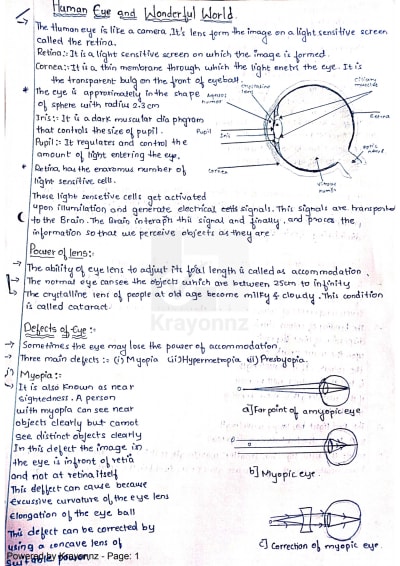 Human Eye and Wonderful World.
→ The Human eye is like a camera. It's lens form the image on a light sensitive screen
called the retina.
Retina:- It is a light sensitive screen on which the image is formed.
Cornea:- It is a thin membrane through which the light enetrs the eye. It is
the transparent bulg on the front of eyeball.
* The eye is approximately in the shape
of sphere with radius 2.3cm
Iris:- It is a dark muscular dia phgram
that controls the size of pupil.
Pupil:- It regulates and control the
amount of light entering the eye.
* Retina has the enaromus number of
light sensitive cells.
These light sensetive cells get activated
upon illumilation and generate electrical cells signals. This signals are transported
to the Brain. The Brain interaph this signal and finally, and proces the
information so that we perceive objects as they are.
Crystalline
lens
Aqueous
humor
Ciliary
muscles
Retina
Pupil
Iris
optic
nerve
Cornea
Vitreous
Power of lens:-
→ The ability of eye lens to adjust its foial length is called as accommodation.
→ The normal eye can see the objects which are between 25cm to infinity
→ The crystalline lens of people at old age become milky & cloudy. This condition
is called cataract.
Krayonnz
Defects of Eye:-
→ Sometimes the eye may lose the power of accommodation.
→ Three main defects:- (i) Myopia (ii) Hypermetropia (iii) Presbyopia.
i) Myopia:-
→ It is also known as near
sightedness. A person
with myopia can see near
objects clearly but camot
see distinct objects clearly
In this defect the image in
the eye is infront of retia
and not at retina itself
This deffect can cause because
Excussive curvature of the eye lens
Elongation of the eye ball
This defect can be corrected by
using a concave lens of
suitable power.
a) Far point of a myopic eye
b] Myopic eye.
c] Correction of myopic eye.
Powered by Krayonnz - Page: 1